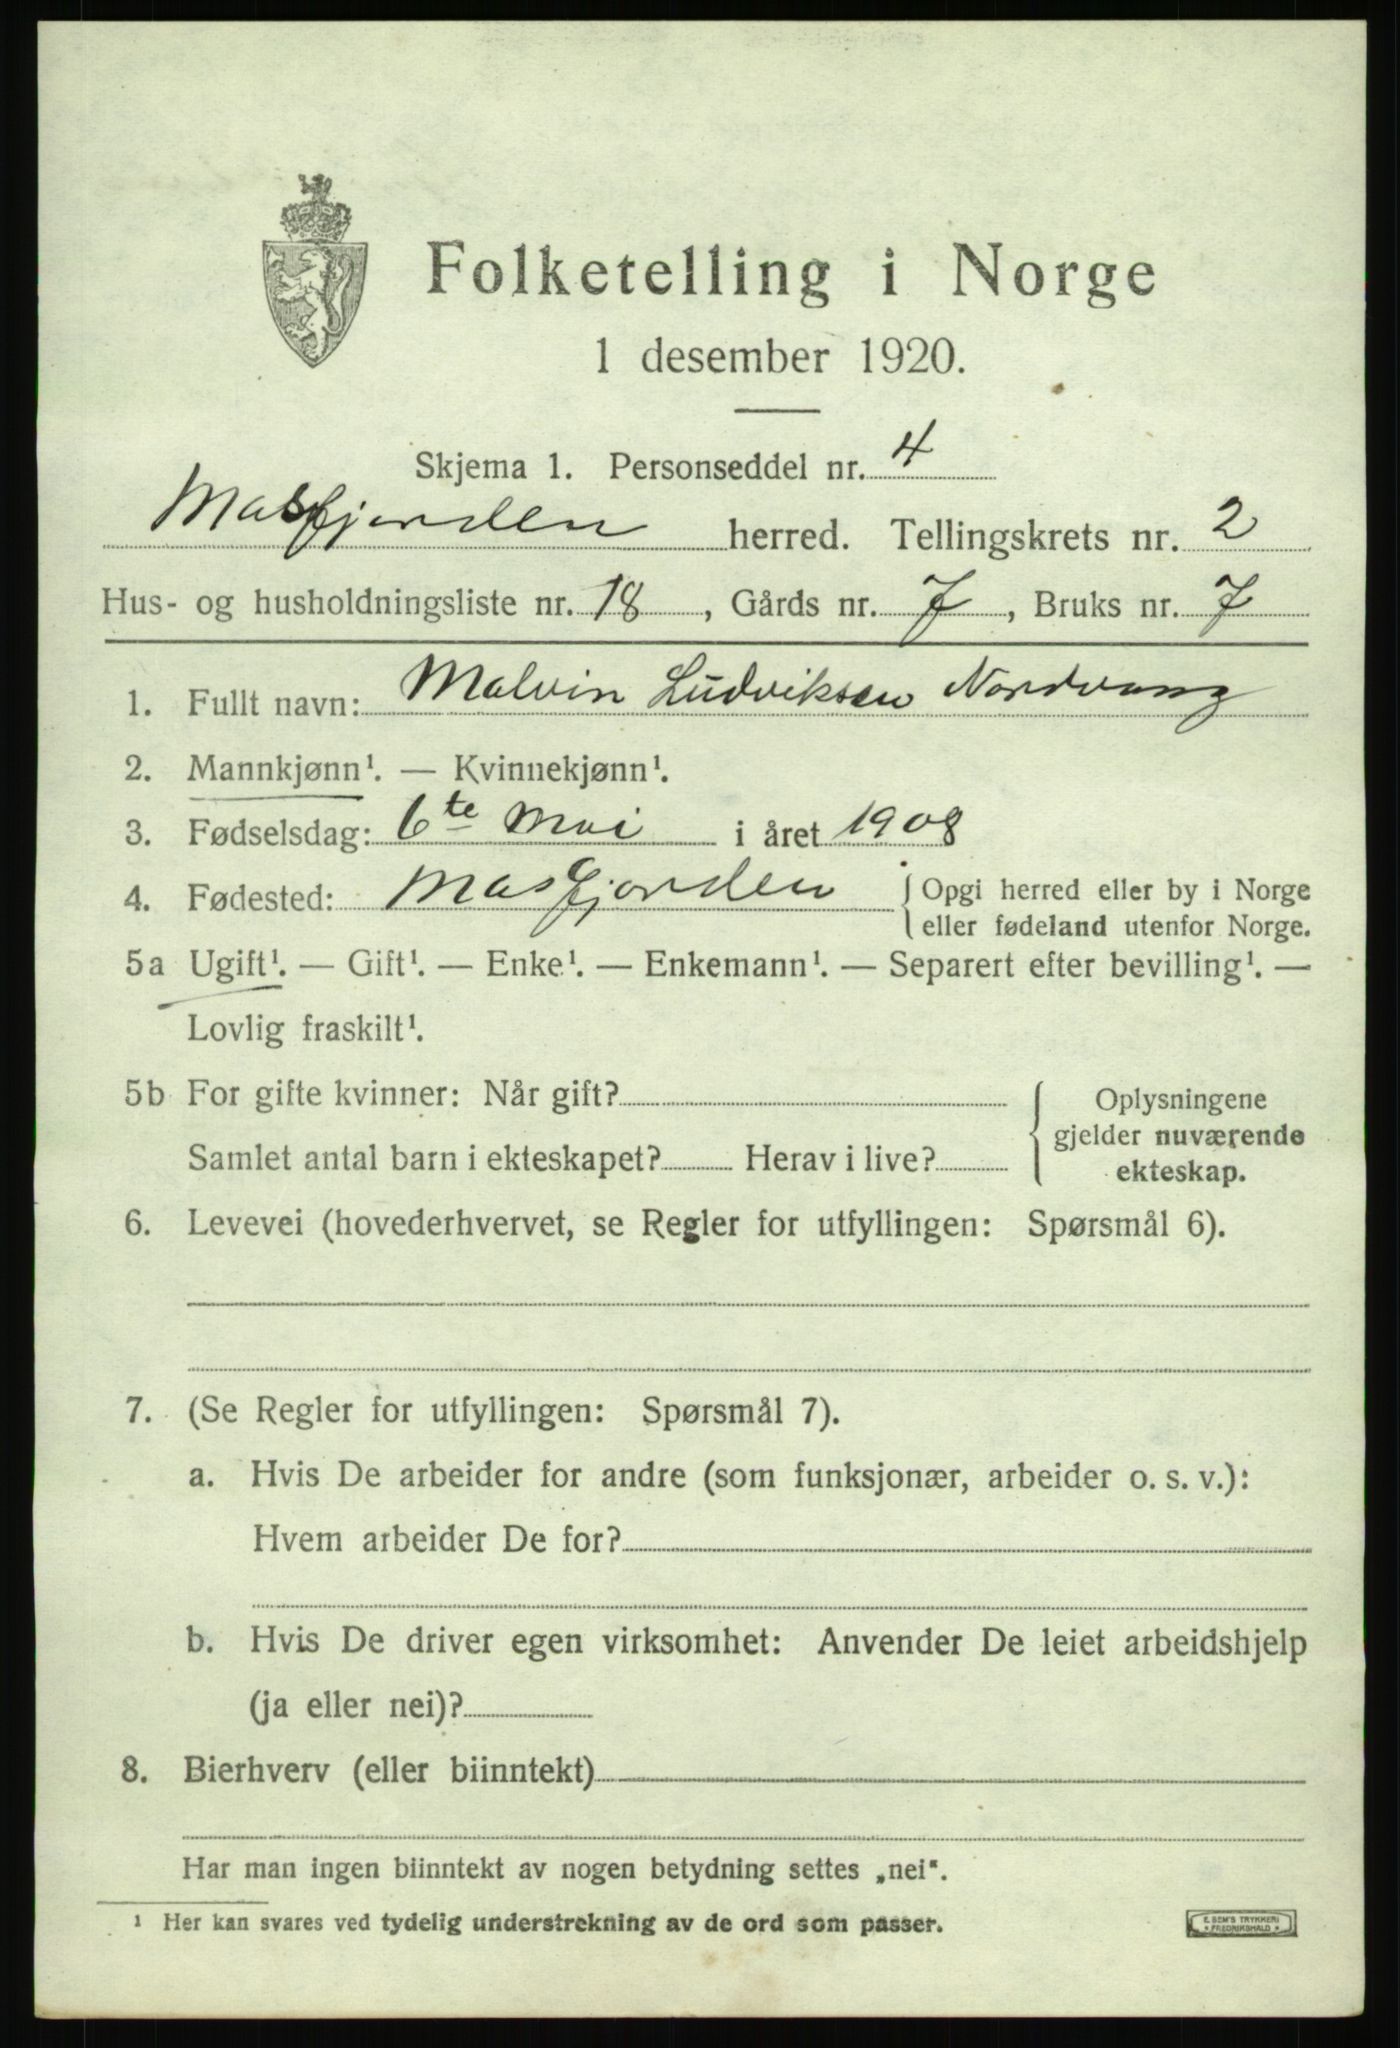 Folketelling i Norge
1 desember 1920.
Skjema 1. Personseddel nr. 4
Masfjorden herred. Tellingskrets nr. 2
Hus- og husholdningsliste nr. 18, Gårds nr. 7, Bruks nr. 7
1. Fullt navn: Malvin Ludviksen Nordvang
2. Mannkjønn¹. — Kvinnekjønn¹.
3. Fødselsdag: 6te Mai i året 1908
4. Fødested: Masfjorden { Opgi herred eller by i Norge
eller fødeland utenfor Norge.
5a Ugift¹. — Gift¹. — Enke¹. — Enkemann¹. — Separert efter bevilling¹. —
Lovlig fraskilt¹.
5b For gifte kvinner: Når gift?
Samlet antal barn i ekteskapet? Herav i live?
{ Oplysningene
gjelder nuværende
ekteskap.
6. Levevei (hovederhvervet, se Regler for utfyllingen: Spørsmål 6).
7. (Se Regler for utfyllingen: Spørsmål 7).
a. Hvis De arbeider for andre (som funksjonær, arbeider o. s. v.):
Hvem arbeider De for?
b. Hvis De driver egen virksomhet: Anvender De leiet arbeidshjelp
(ja eller nei)?
8. Bierhverv (eller biinntekt)
Har man ingen biinntekt av nogen betydning settes „nei“.
¹ Her kan svares ved tydelig understrekning av de ord som passer.
E. SEM'S TRYKKERI
* FREDRIKSHALD *